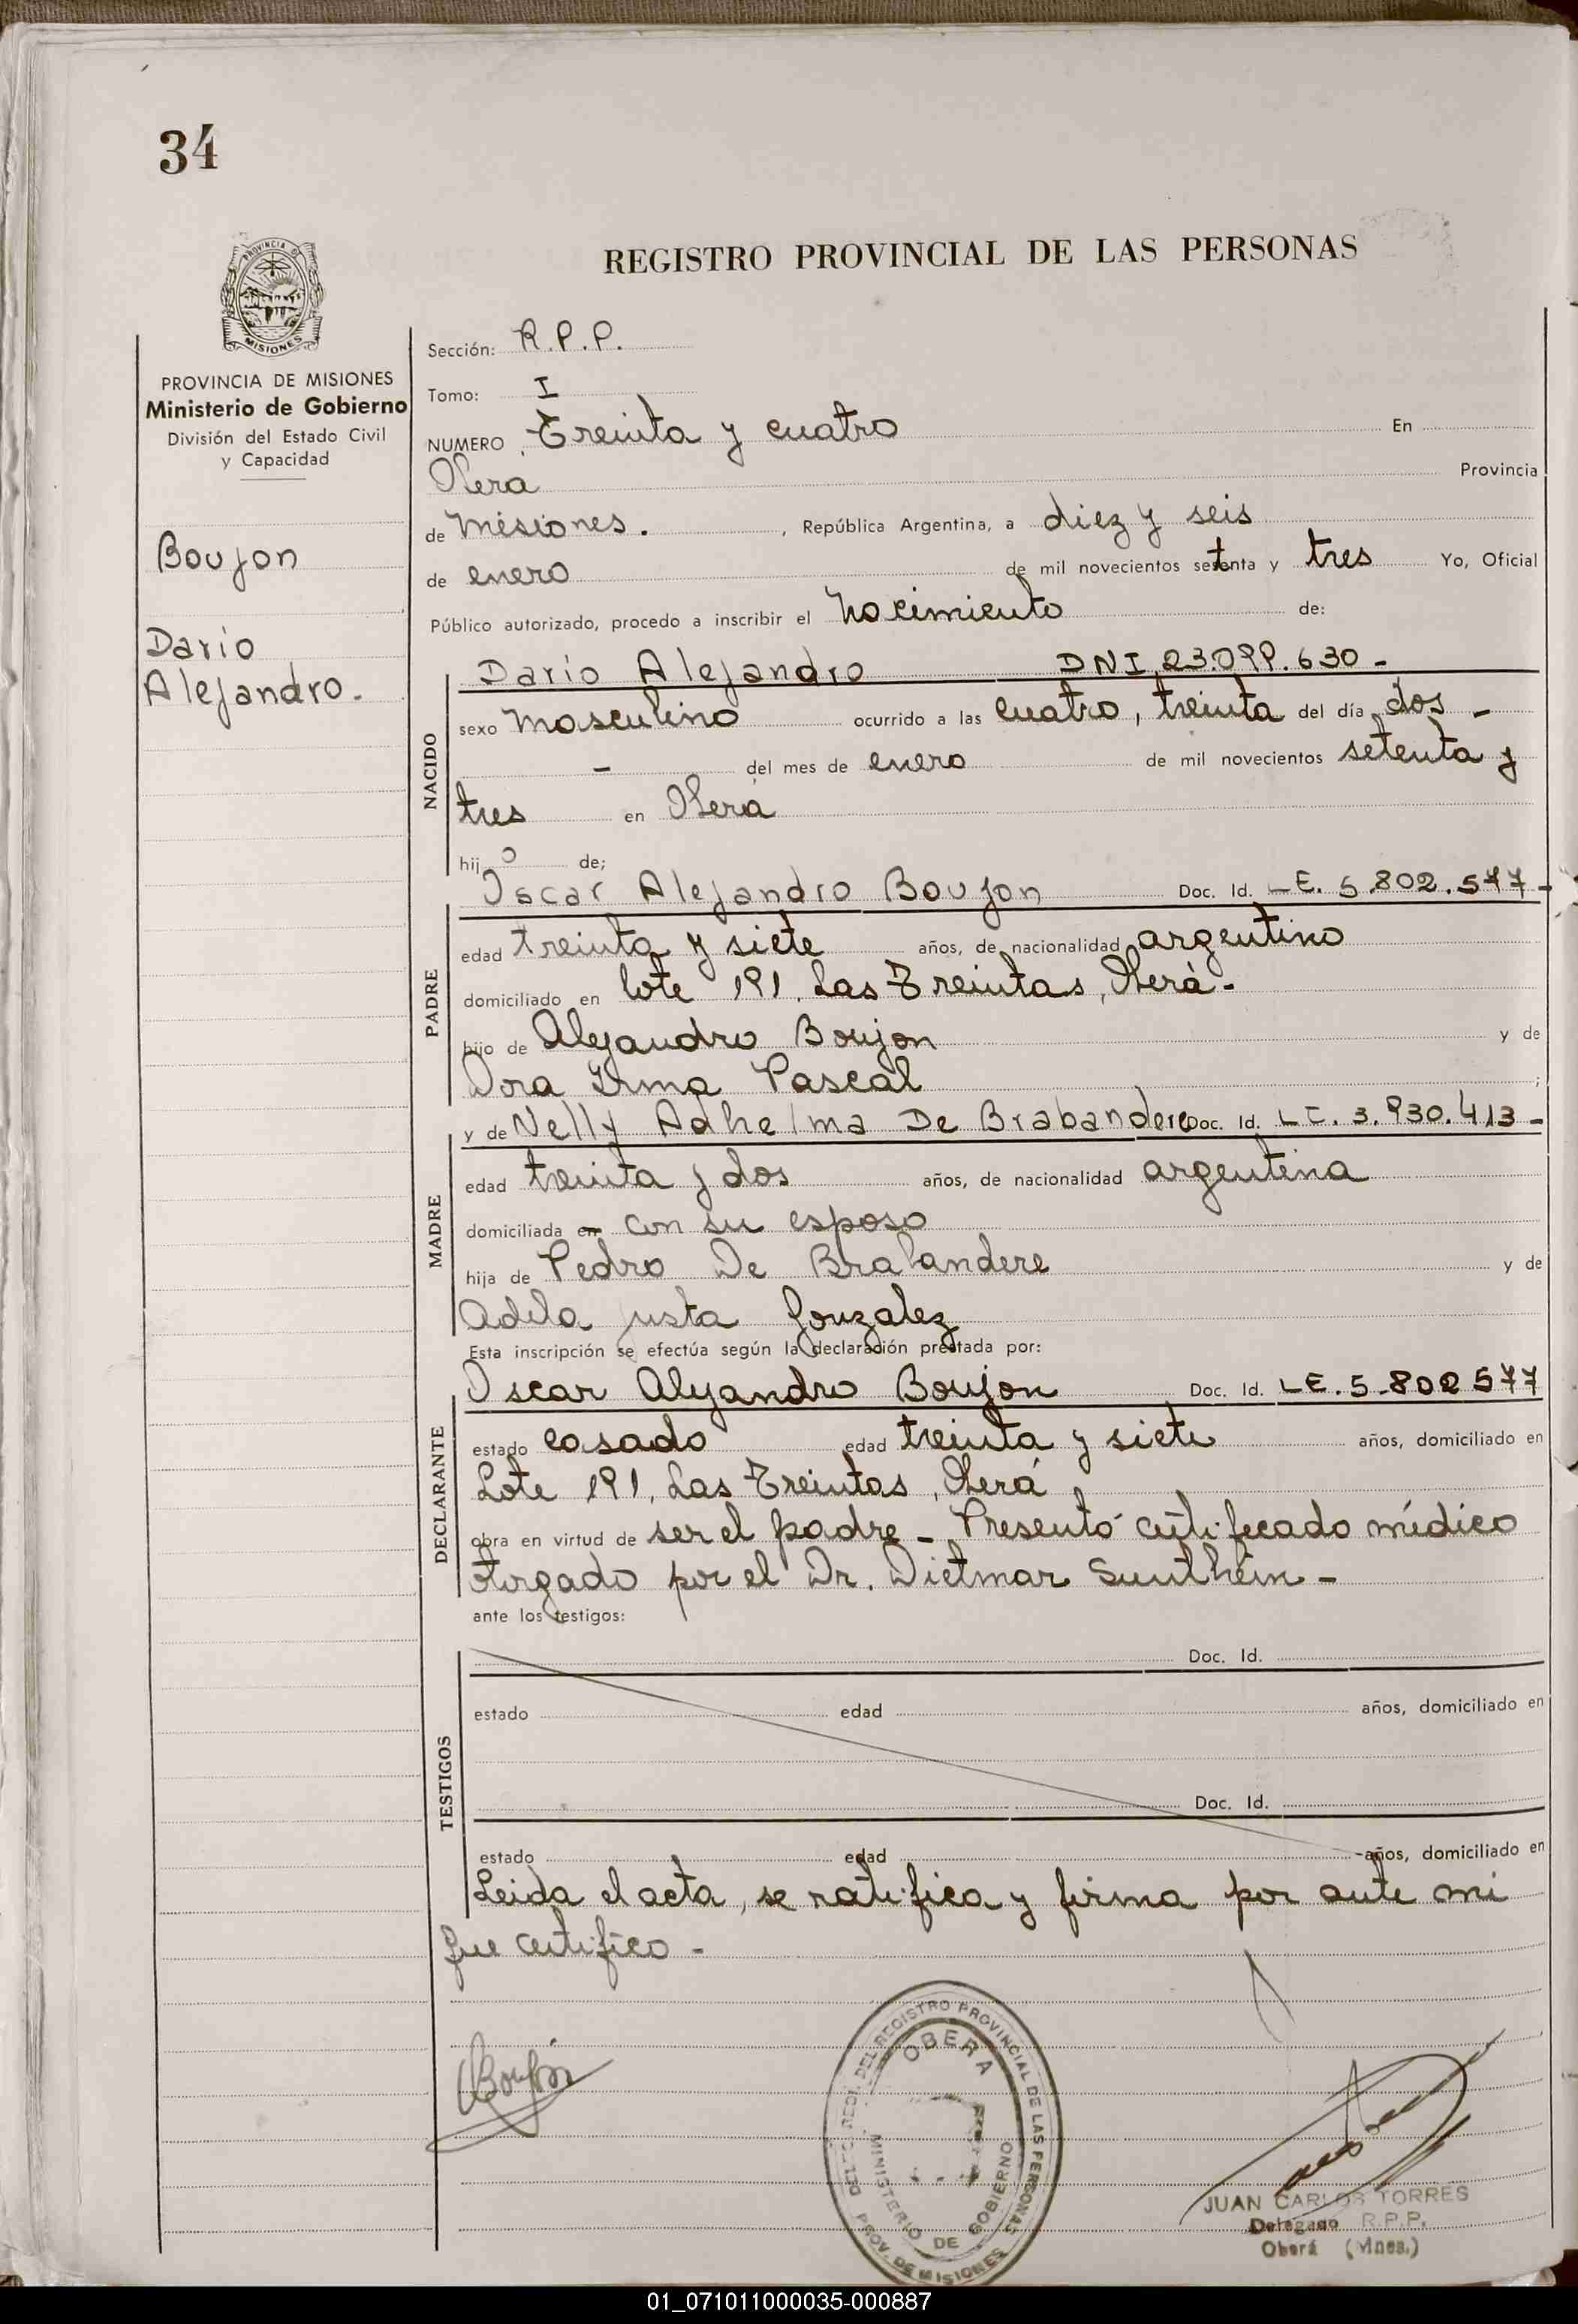 34
REGISTRO PROVINCIAL DE LAS PERSONAS
PROVINCIA DE MISIONES
Ministerio de Gobierno
División del Estado Civil
y Capacidad
Boujon
Dario
Alejandro.
Sección: R.P.P.
Tomo: I
NUMERO Treinta y cuatro En
Oberá Provincia
de Misiones. , República Argentina, a diez y seis
de enero de mil novecientos setenta y tres Yo, Oficial
Público autorizado, procedo a inscribir el Nacimiento de:
NACIDO
Dario Alejandro DNI 23.099.630 -
sexo masculino ocurrido a las cuatro, treinta del día dos -
- del mes de enero de mil novecientos setenta y
tres en Oberá
hijo de;
PADRE
Oscar Alejandro Boujon Doc. Id. LE. 5.802.577 -
edad treinta y siete años, de nacionalidad argentino
domiciliado en lote 191, Las Treintas, Oberá -
hijo de Alejandro Boujon y de
Dora Irma Pascal ;
MADRE
y de Nelly Adhelma De Brabandere Doc. Id. LC. 3.930.413 -
edad treinta y dos años, de nacionalidad argentina
domiciliada en con su esposo
hija de Pedro De Brabandere y de
Adela Justa Gonzalez
Esta inscripción se efectúa según la declaración prestada por:
DECLARANTE
Oscar Alejandro Boujon Doc. Id. LE. 5.802577
estado casado edad treinta y siete años, domiciliado en
Lote 191, Las Treintas, Oberá
obra en virtud de ser el padre - Presentó certificado médico
otorgado por el Dr. Dietmar Sunthein -
ante los testigos:
TESTIGOS
Doc. Id.
estado edad años, domiciliado en
Doc. Id.
estado edad años, domiciliado en
Leida el acta, se ratifica y firma por ante mi
que certifico -
Boujon
DEL REGISTRO PROVINCIAL DE LAS PERSONAS
OBERA
MINISTERIO DE GOBIERNO
PROV. DE MISIONES
JUAN CARLOS TORRES
Delegado R.P.P.
Oberá (Mnes.)
01_071011000035-000887